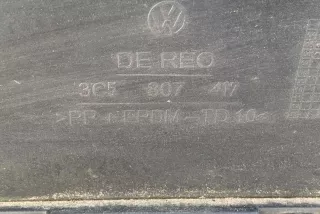 DE REO
3C5 807 417
>PP + EPDM - TD 10<